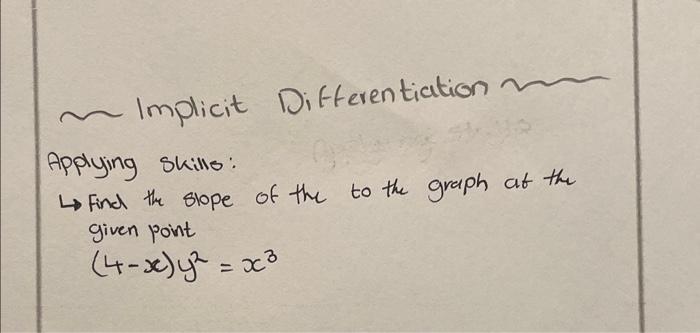 Implicit Differentiation
Applying Skills:
↳ Find the slope of the to the graph at the
given point
(4-x)y² = x³